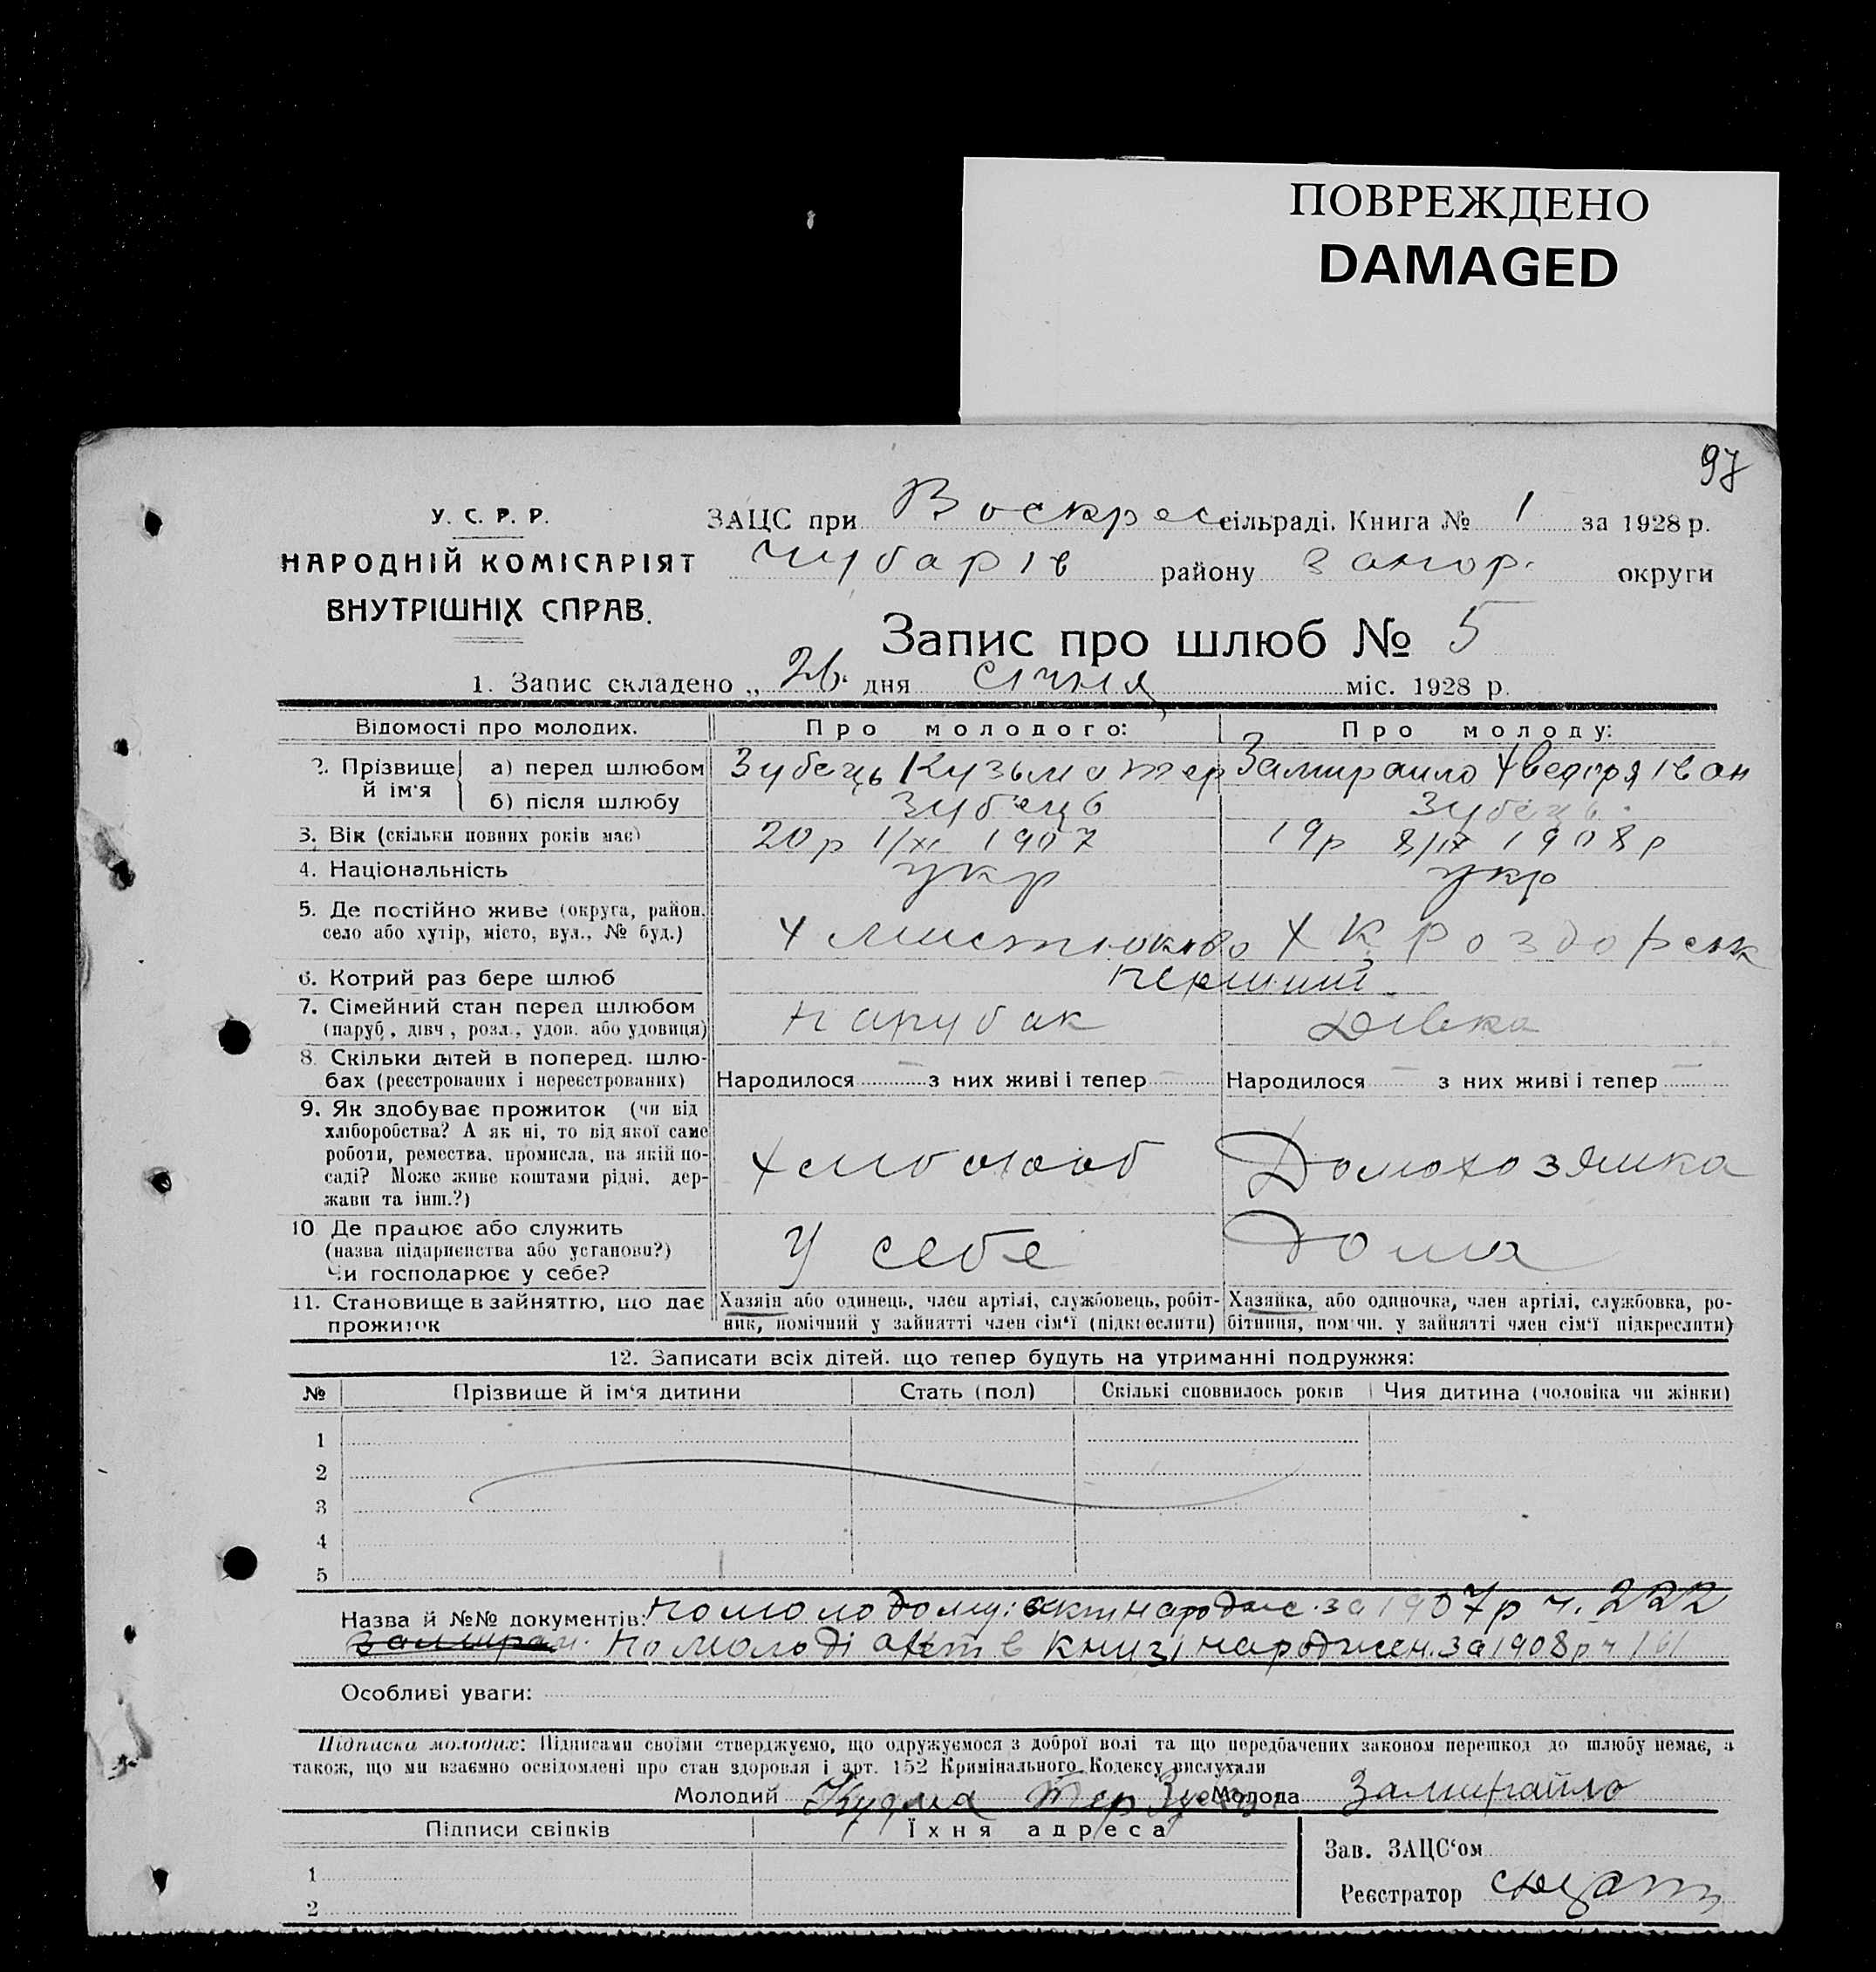 ПОВРЕЖДЕНО
DAMAGED
97
У. С. Р. Р.
НАРОДНІЙ КОМІСАРІЯТ
ВНУТРІШНІХ СПРАВ.
ЗАЦС при Воскрес сільраді. Книга № 1 за 1928 р.
Чубарів району Запор. округи
Запис про шлюб № 5
1. Запис складено „ 26. дня січня міс. 1928 р.
Відомості про молодих. Про молодого: Про молоду:
2. Прізвище й ім'я а) перед шлюбом Зубець Кузьма Тер Замирайло Хведоря Іван
б) після шлюбу Зубець Зубець.
3. Вік (скільки повних років має) 20 р 1/XI 1907 19 р 8/IX 1908 р
4. Національність укр укр
5. Де постійно живе (округа, район, село або хутір, місто, вул., № буд.) Х Х К Роздорськ
6. Котрий раз бере шлюб перший
7. Сімейний стан перед шлюбом (паруб., дівч., розл., удов. або удовиця) парубак Дівка
8. Скільки дітей в поперед. шлюбах (реєстрованих і нереєстрованих) Народилося — з них живі і тепер — Народилося — з них живі і тепер —
9. Як здобуває прожиток (чи від
хліборобства? А як ні, то від якої саме
роботи, ремества, промисла, на якій по-
саді? Може живе коштами рідні, дер-
жави та інш.?) Домохозяйка
10 Де працює або служить
(назва підприємства або установи?)
Чи господарює у себе? У себе Дома
11. Становище в зайняттю, що дає прожиток
Хазяїн або одинець, член артілі, службовець, робіт-
ник, помічний у зайнятті член сім'ї (підкреслити)
Хазяйка, або одиночка, член артілі, службовка, ро-
бітниця, помічн. у зайнятті член сім'ї підкреслити)
12. Записати всіх дітей. що тепер будуть на утриманні подружжя:
№ Прізвище й ім'я дитини Стать (пол) Скількі сповнилось років Чия дитина (чоловіка чи жінки)
1
2
3
4
5
Назва й №№ документів: По молодому: акт народже. за 1907 р ч. 222
По молоді акт в книзі народжен. за 1908 р ч 161
Особливі уваги:
Підписка молодих: Підписами своїми стверджуємо, що одружуємося з доброї волі та що передбачених законом перешкод до шлюбу немає, а
також, що ми взаємно освідомлені про стан здоровля і арт. 152 Кримінального Кодексу вислухали
Молодий Кузма Тер Молода Замирайло
Підписи свідків Їхня адреса
Зав. ЗАЦС'ом
1
Реєстратор
2